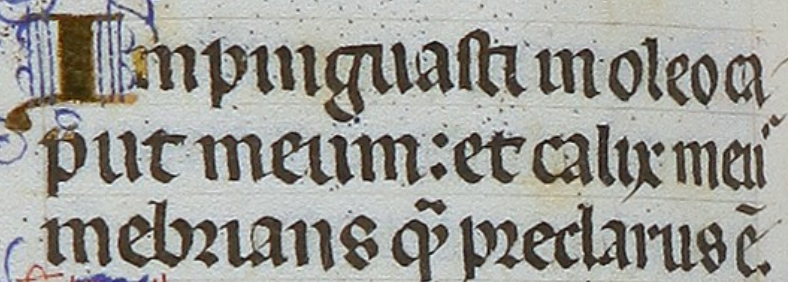 Impinguasti in oleo ca
put meum: et calix meu᷒
inebrians q̃ preclarus ē.